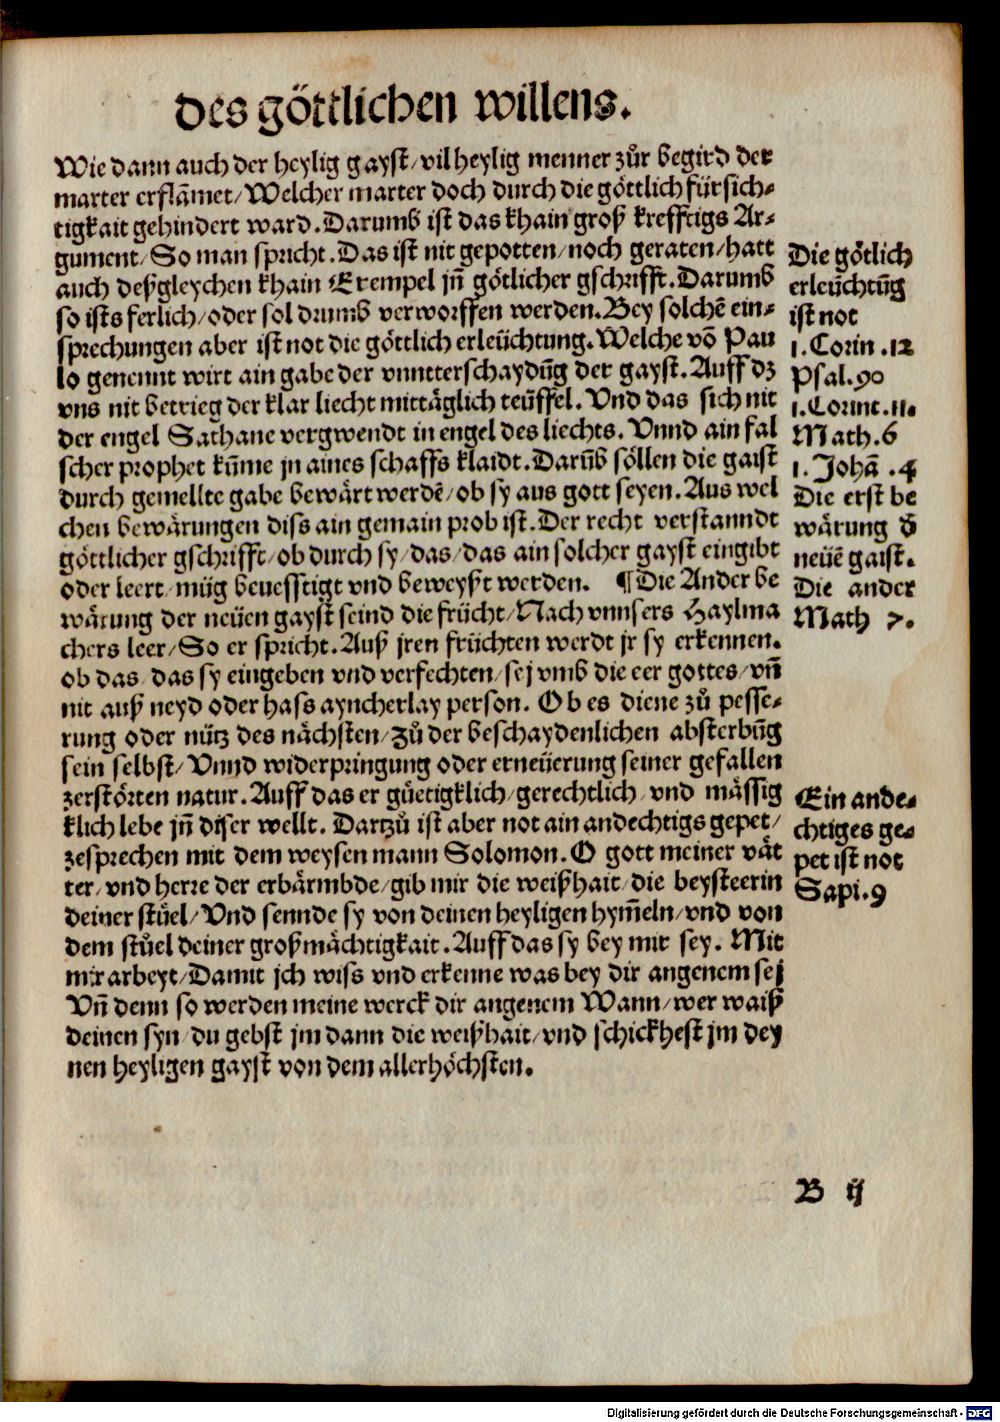 des göttlichen willens.
Wie dann auch der heylig gayst/vil heylig menner zůr begird der
marter erflāmet/Welcher marter doch durch die göttlich fürsich-
tigkait gehindert ward. Darumb ist das khain groß krefftigs Ar-
gument/So man spricht. Das ist nit gepotten/noch geraten/hatt
auch deßgleychen khain Exempel jn̄ götlicher gschrifft. Darumb
so ists ferlich/oder sol drumb verworffen werden. Bey solchē ein-
sprechungen aber ist not die göttlich erleüchtung. Welche vō Pau
lo genennt wirt ain gabe der vnntterschaydūg der gayst. Auff dz
vns nit betrieg der klar liecht mittäglich teüffel. Vnd das sich nit
der engel Sathane vergwendt in engel des liechts. Vnnd ain fal
scher prophet kūme jn aines schaffs klaidt. Darūb söllen die gaist
durch gemellte gabe bewärt werdē/ob sy aus gott seyen. Aus wel
chen bewärungen diss ain gemain prob ist. Der recht verstanndt
göttlicher gschrifft/ob durch sy/das/das ain solcher gayst eingibt
oder leert/müg beuesstigt vnd beweyßt werden. ¶Die Ander be
wärung der neüen gayst seind die frücht/Nach vnnsers Haylma
chers leer/So er spricht. Auß jren früchten werdt jr sy erkennen.
ob das/das sy eingeben vnd verfechten/sej vmb die eer gottes/vn̄
nit auß neyd oder hass ayncherlay person. Ob es diene zů pesse-
rung oder nütz des nächsten/Zů der beschaydenlichen absterbūg
sein selbst/Vnnd widerpringung oder erneüerung seiner gefallen
zerstörten natur. Auff das er gůetigklich/gerechtlich/vnd mässig
klich lebe jn̄ diser wellt. Dartzů ist aber not ain andechtigs gepet/
zesprechen mit dem weysen mann Solomon. O gott meiner vät
ter/vnd herre der erbärmbde/gib mir die weißhait/die beysteerin
deiner stůel/Vnd sennde sy von deinen heyligen hym̄eln/vnd von
dem stůel deiner großmächtigkait. Auff das sy bey mir sey. Mit
mir arbeyt/Damit jch wiss vnd erkenne was bey dir angenem sej
Vn̄ denn so werden meine werck dir angenem Wann/wer waiß
deinen syn/du gebst jm dann die weißhait/vnd schickhest jm dey
nen heyligen gayst von dem allerhöchsten.
Die götlich
erleüchtūg
ist not
1. Corin. 12
Psal. 90
1. Corint. 11.
Math. 6
1. Johā. 4
Die erst be
wärung d'
neüē gaist.
Die ander
Math 7.
Ein ande-
chtiges ge-
pet ist not
Sapi. 9
B ij
Digitalisierung gefördert durch die Deutsche Forschungsgemeinschaft - DFG